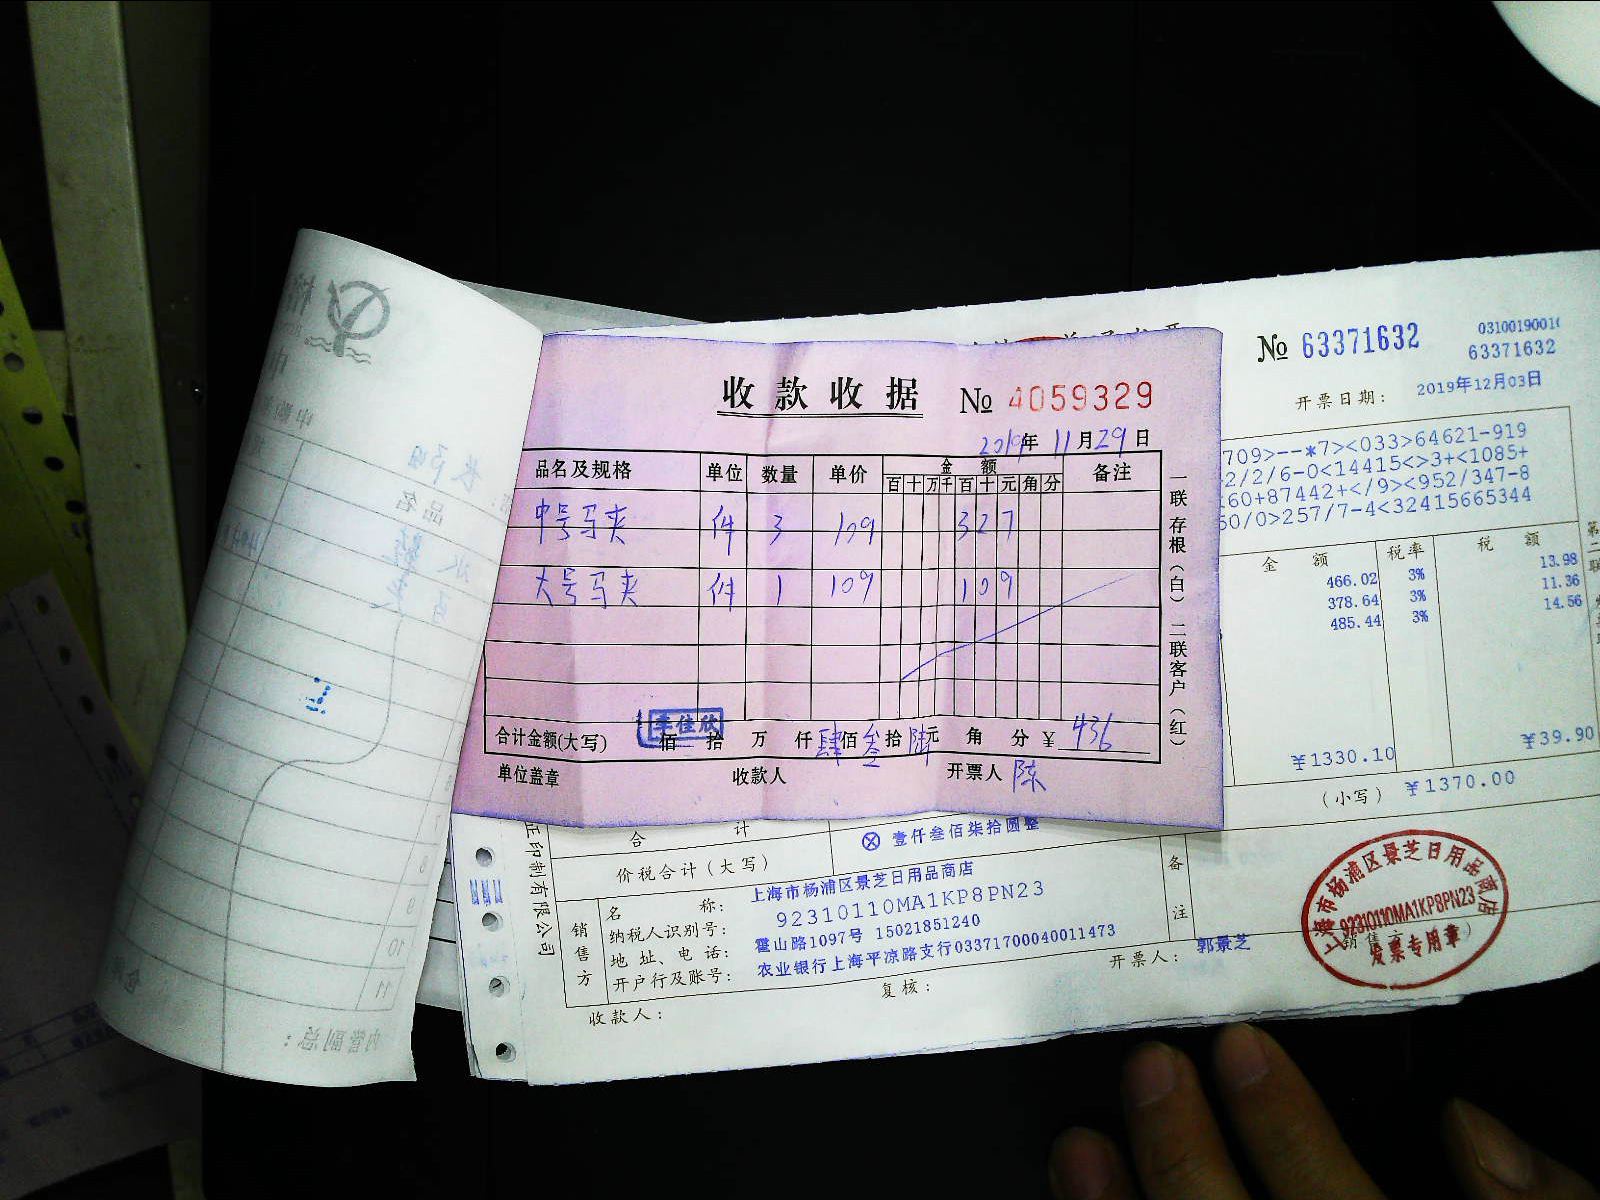 收款收据 № 4059329
2019年 11月29日
品名及规格 单位 数量 单价 金额 备注
百十万千百十元角分
中号马夹 件 3 109 327
大号马夹 件 1 109 109
李佳欣
合计金额(大写) 佰 拾 万 仟 肆佰 叁拾 陆元 角 分 ¥ 436
单位盖章 收款人 开票人 陈
一联存根（白）二联客户（红）
№ 63371632
63371632
开票日期： 2019年12月03日
709>--*7><033>64621-919
2/2/6-0<14415<>3+<1085+
60+87442+</9><952/347-8
50/0>257/7-4<32415665344
金额 税率 税额
466.02 3% 13.98
378.64 3% 11.36
485.44 3% 14.56
¥1330.10 ¥39.90
合计
价税合计（大写） ⊗ 壹仟叁佰柒拾圆整 （小写） ¥1370.00
销售方
名称： 上海市杨浦区景芝日用品商店
纳税人识别号： 92310110MA1KP8PN23
地址、电话： 霍山路1097号 15021851240
开户行及账号： 农业银行上海平凉路支行03371700040011473
备注
收款人： 复核： 开票人： 郭景芝
上海市杨浦区景芝日用品商店
92310110MA1KP8PN23
发票专用章
印制有限公司